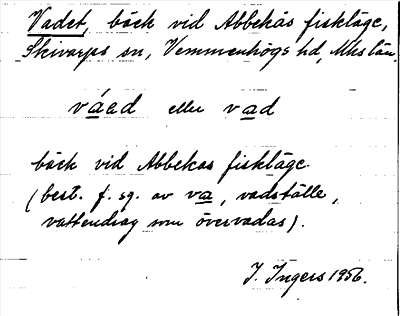 Vadet, bäck vid Abbekås fiskläge,
Skivarps sn, Vemmenhögs hd, Mhs län.
váed eller vad
bäck vid Abbekås fiskläge
(best. f. sg. av va, vadställe,
vattendrag som övervadas).
I. Ingers 1956.